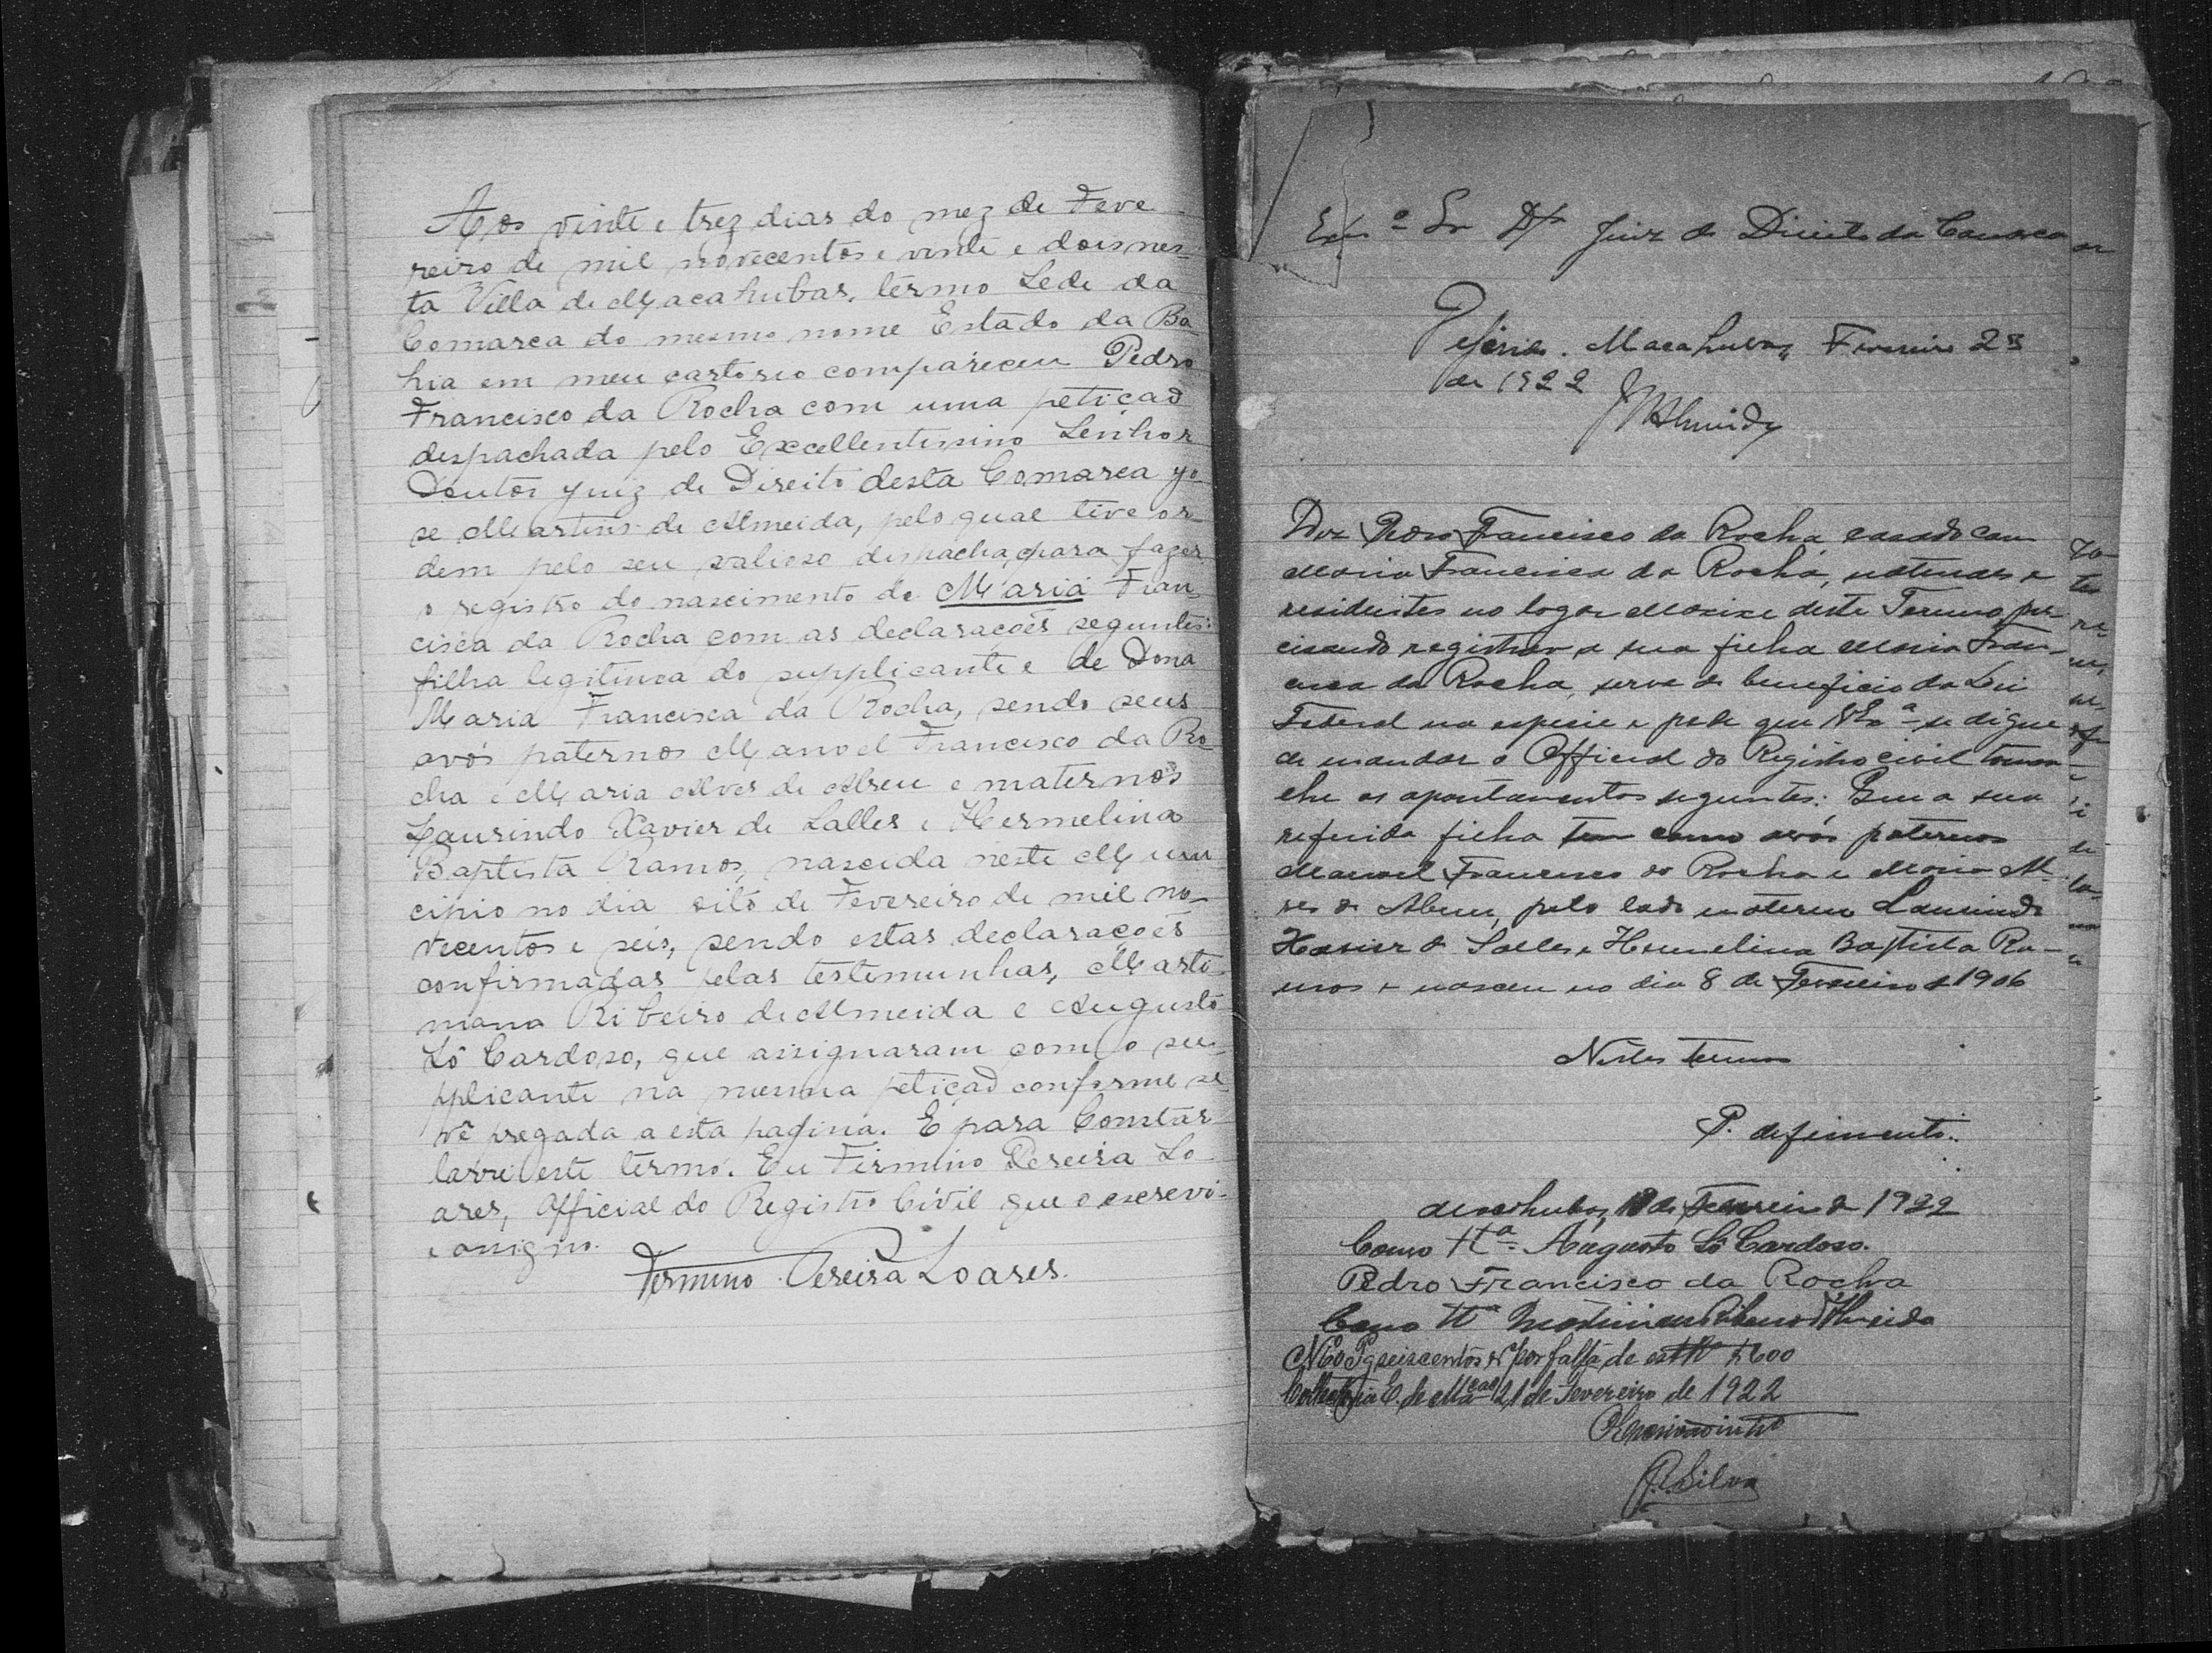 Aos vinte e trez dias do mez de Feve
reiro de mil novecentos e vinte e dois nes-
ta Villa de Macahubas, termo Sede da
Comarca do mesmo nome Estado da Ba
hia em meu cartorio compareceu Pedro
Francisco da Rocha com uma petiçaõ
despachada pelo Excellentissimo Senhor
Doutor Juiz de Direito desta Comarca Jo
se Martins de Almeida, pelo qual tive or-
dem pelo seu valioso despacho, para fazer
o registro do nascimento de Maria Fran
cisca da Rocha com as declarações seguintes:
filha legitima do supplicante e de Dona
Maria Francisca da Rocha, sendo seus
avós paternos Manoel Francisco da Ro-
cha e Maria Alves de Abreu e maternos
Laurindo Xavier de Salles e Hermelina
Baptista Ramos, nascida neste Muni
cipio no dia oito de Fevereiro de mil no-
vecentos e seis, sendo estas declarações
confirmadas pelas testimunhas, Marti-
mano Ribeiro de Almeida e Augusto
Sô Cardoso, que assignaram com o su-
pplicante na mesma petiçaõ conforme se
vê pregada a esta pagina. E para Constar
lavrei este termo. Eu Firmino Pereira So
ares, Official do Registro Civil que o escrevi-
e assigno.
Firmino Pereira Soares.
Exmº Sr Dr Juiz de Direito da Comarca
Macahubas, Fevereiro 23
de 1922
JMAlmeida
Diz Pedro Francisco da Rocha, casado com
Maria Francisca da Rocha, naturaes e
residentes no logar Maxixe deste Termo, pre-
cisando registrar a sua filha Maria Fran-
cisca da Rocha, serve do beneficio da Lei
Federal na especie e pede que VExª se digne
de mandar o Official do Registro civil tomar
lhe os apontamentos seguintes: Que a sua
referida filha tem como avós paternos
Manoel Francisco da Rocha e Maria Al-
ves de Abreu, pelo lado materno Laurindo
Xavier de Salles e Hermelina Baptista Ra-
mos e nasceu no dia 8 de Fevereiro de 1906
Nestes termos
P. deferimento.
Macahubas, 18 de Fevereiro de 1922
Como ttª Augusto Sô Cardoso.
Pedro Francisco da Rocha
Como ttª Martimano Ribeiro d'Almeida
Pg seiscentos rs por falta de estª $600
Collectoria E. de Macªs 21 de Fevereiro de 1922
P. Silva